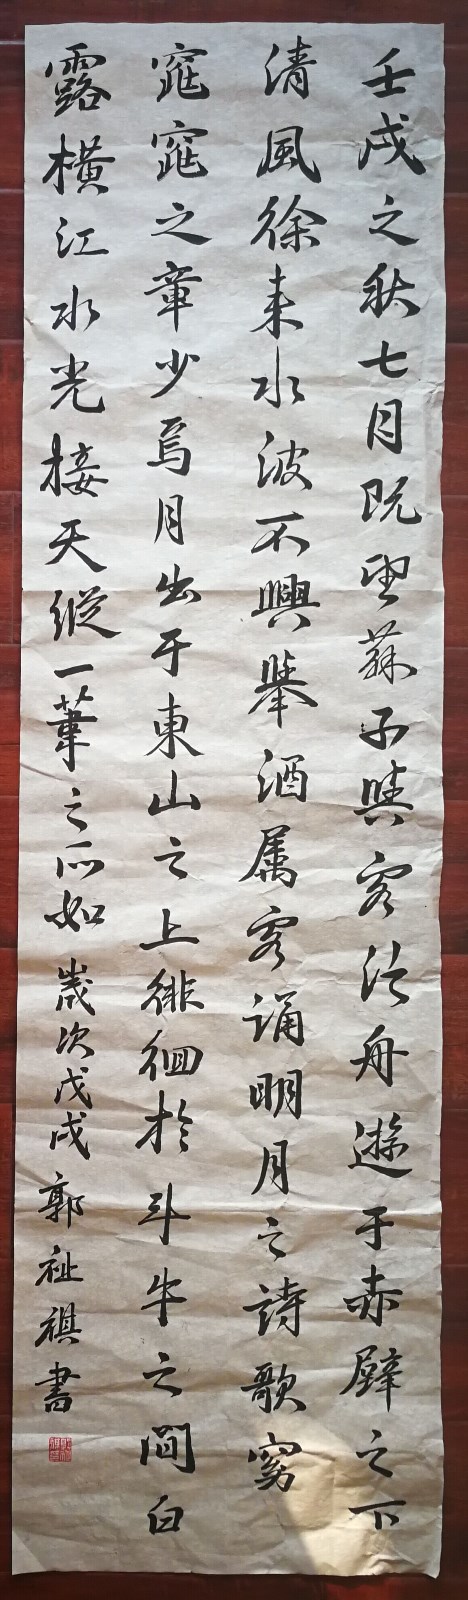 壬戌之秋七月既望蘇子與客泛舟遊于赤壁之下
清風徐来水波不興舉酒属客誦明月之詩歌窈
窕窕之章少焉月出于東山之上徘徊於斗牛之間白
露橫江水光接天縱一葦之所如歲次戊戌郭祉祺書